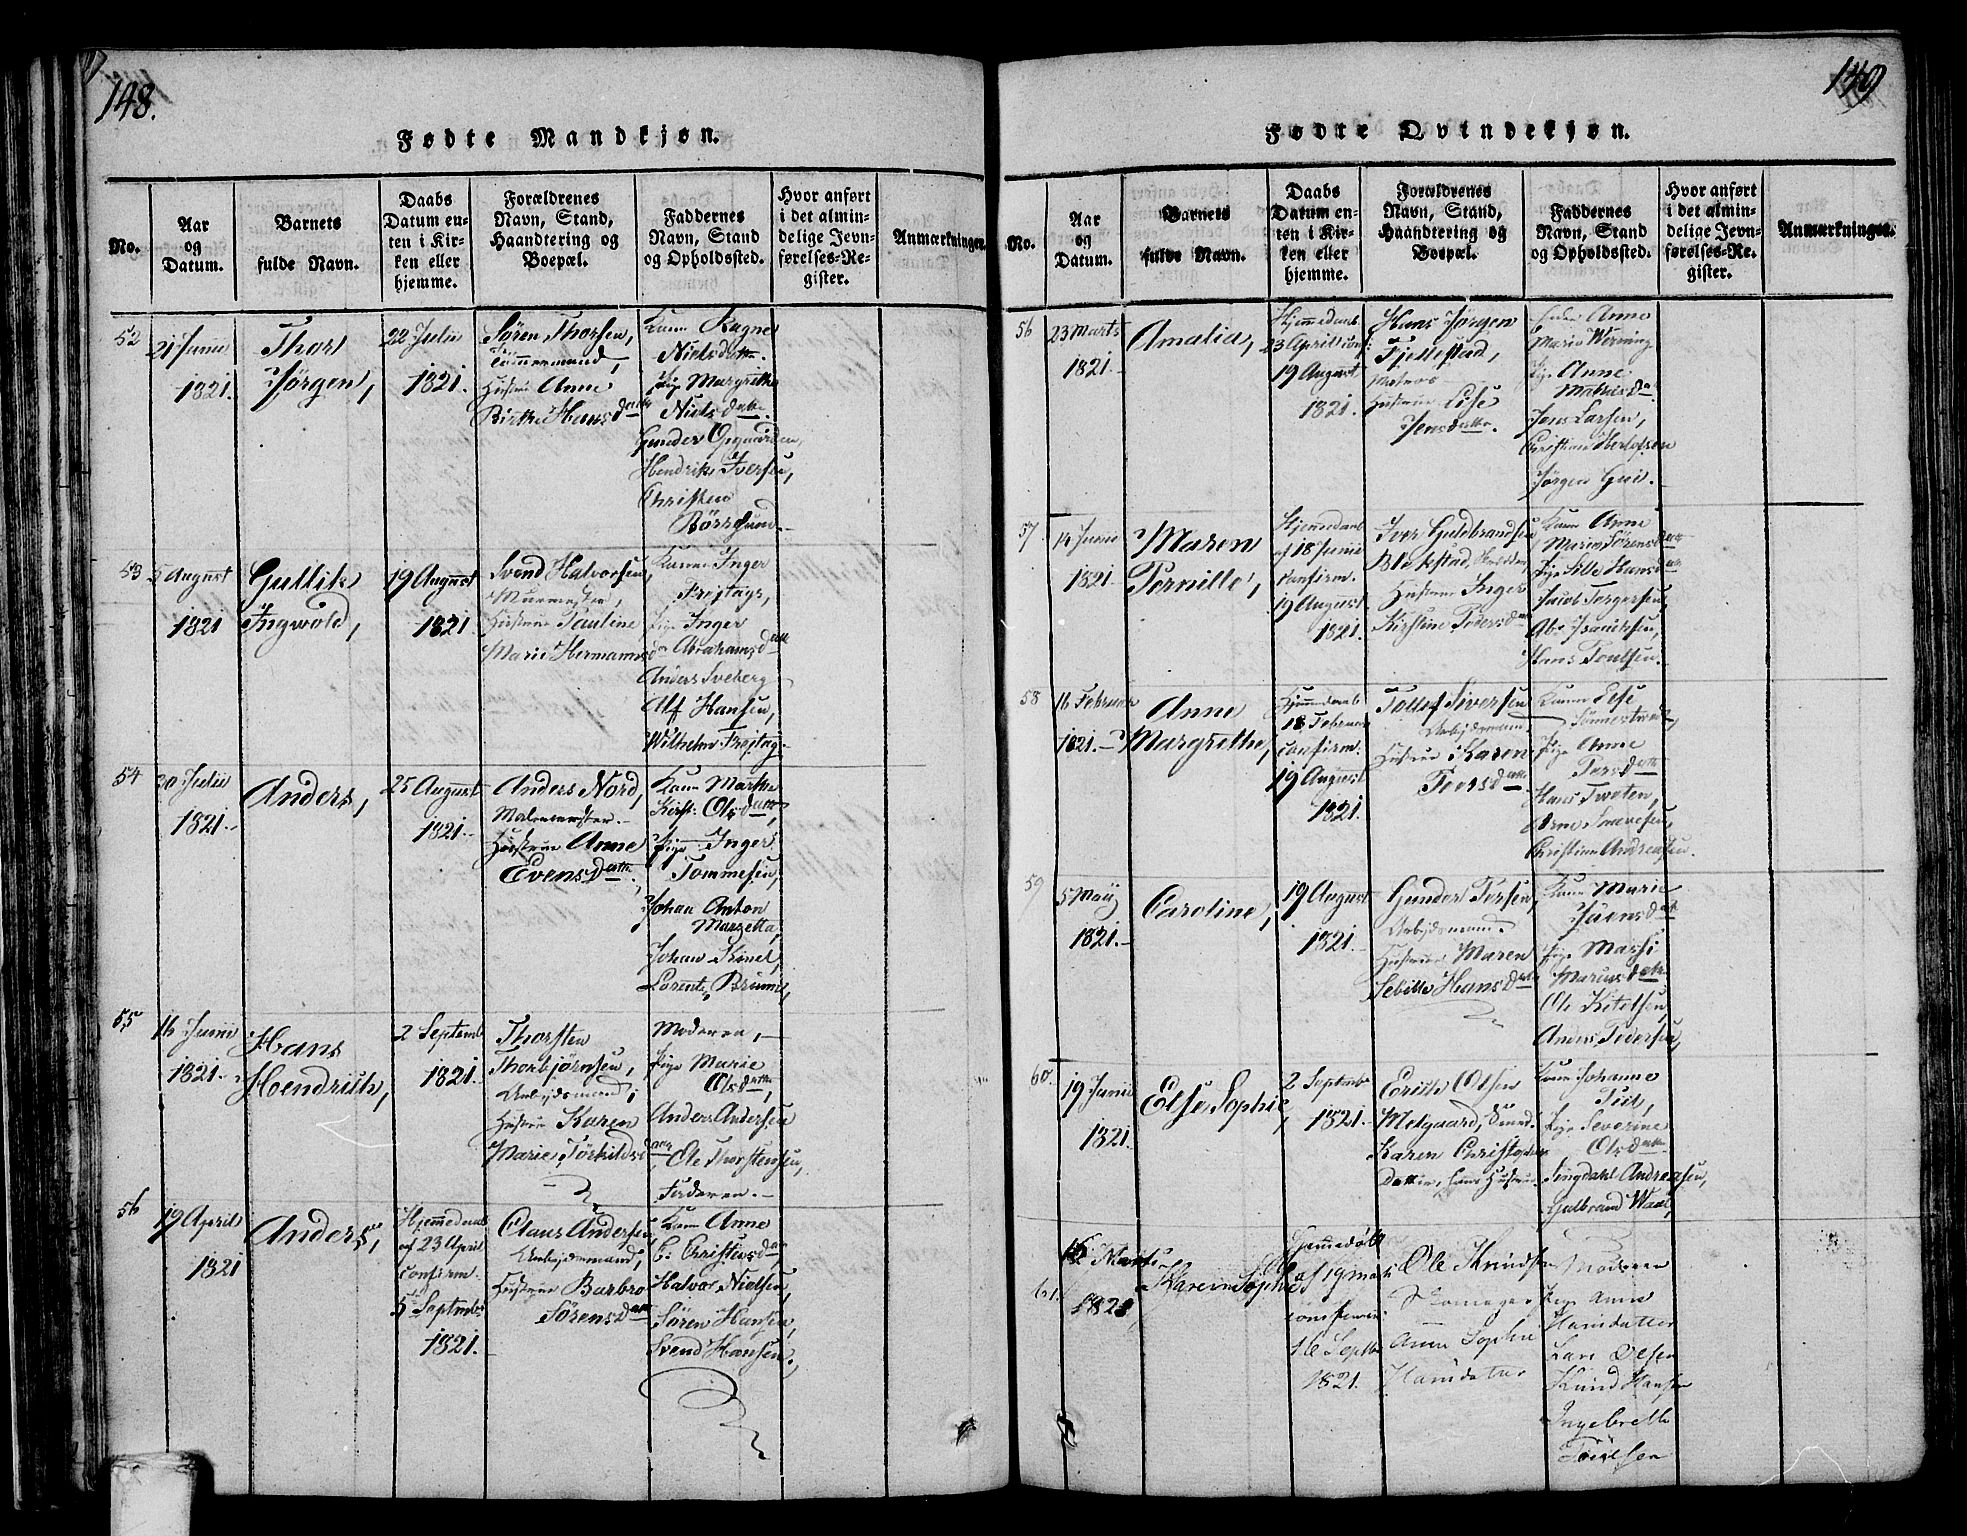 148.
Fødte Mandkjøn.
No.
Aar
og
Datum.
Barnets
fulde Navn.
Daabs
Datum en-
ten i Kir-
ken eller
hjemme.
Forældrenes
Navn, Stand,
Haandtering og
Boepæl.
Faddernes
Navn, Stand
og Opholdssted.
Hvor anført
i det almin-
delige Jevn-
førelses-Re-
gister.
Anmærkninger.
52
21 Junii
1821.
Thor
Jörgen,
22 Julii
1821.
Sören Thorsen,
Tömmermand,
Hustrue Anne
Birthe Hansdatter
Kone Ragne
Nielsdatter.
Pige Margrethe
Nielsdatter.
Gunder Opgaarden,
Hendrik Iversen,
Christen
53
5 August
1821
Gullik
Ingwold,
19 August
1821.
Svend Halvorsen,
Murmester,
Hustrue Pauline
Marie Hermansdr
Kone Inger
Frejtags,
Pige Inger
Abrahamsdatter
Anders Sveberg
Alf Hansen,
Wilhelm Frejtag.
54
30 Julii
1821.
Anders,
25 August
1821.
Anders Nord,
Malermester.
Hustrue Anne
Evensdatter,
Kone Marthe
Kirst: Olsdatter,
Pige Inger
Tommesen,
Johan Anton
Marzetta,
Johan
Lorents
55
16 Junii
1821.
Hans
Hendrich,
2 Septemb
1821.
Thorsten
Thorbjörnsen,
Arbejdsmand,
Hustrue Karen
Marie Törkildsdatter
Moderen,
Pige Marie
Olsdatter,
Anders Andersen
Ole Thorstensen,
Faderen.
56
19 April
1821
Anders,
Hjemmedaab
af 23 April
confirm.
5 Septmbr
1821.
Claus Andersen,
Arbejdsmand,
Hustrue Barbro
Sörensdatter
Kone Anne
C. Christensdatter
Halvor Nielsen,
Sören Hansen,
Svend Hansen.
149
Fødte Qvindekjøn.
No.
Aar
og
Datum.
Barnets
fulde Navn.
Daabs
Datum en-
ten i Kir-
ken eller
hjemme.
Forældrenes
Navn, Stand,
Haandtering og
Boepæl.
Faddernes
Navn, Stand
og Opholdssted.
Hvor anført
i det almin-
delige Jevn-
førelses-Re-
gister.
Anmærkninger.
56
23 Marts
1821.
Amalia,
Hjemmedaab
23 April conf:
19 August
1821.
Hans Jörgen
Fjellestad,
Matros
Hustrue Lise
Jensdatter.
Anne
Marie Werning
Pige Anne
Jens Larsen,
Christian Herlofsen
Jörgen
57
14 Junii
1821.
Maren
Pernille,
Hjemmedaab
af 18 Junii
confirm.
19 August
1821.
Iver Guldbrandsen
Blekstad,
Hustrue Inger
Kirstine Pedersdatter
Kone Anne
Marie Sörensdatter
Pige Sille Hansdatter
Jacob Torgersen,
Abr Isacksen,
Hans Poulsen.
58
16 Februar
1821.
Anne
Margrethe,
Hjemmedaab
18 Februar
confirm.
19 August
1821.
Tollef Sivertsen
Arbejdsmand.
Hustrue Karen
Peersdatter
Kone Else
Pige Anne
Hans Tveten,
Arne
Christian Andreasen.
59
5 Maij
1821.
Caroline,
19 August
1821.
Gunder Torsen,
Arbejdsmand.
Hustrue Maren
Sebille Hansdatter
Kone Marie
Jensdatter
Pige
Ole Kittelsen
Anders Pedersen,
60.
19 Junii
1821.
Else Sophie,
2 Septmbr
1821.
Eerich Olsen
Melgaard,
Karen Christophers
Datter, hans Hustrue.
Kone Johanne
Pige Severine
Olsdatter
Singdahl Andreasen,
Gulbrand Waal,
61.
Marts
1821
Karen Sophie
af 19 Marts
confirmeret
16 Septbr
1821.
Ole Knudsen
Anne Sophie
Hansdatter
Moderen
Pige Anne
Hansdatter
Lars Olsen
Knud Hansen
Ingebrett
Poulsen